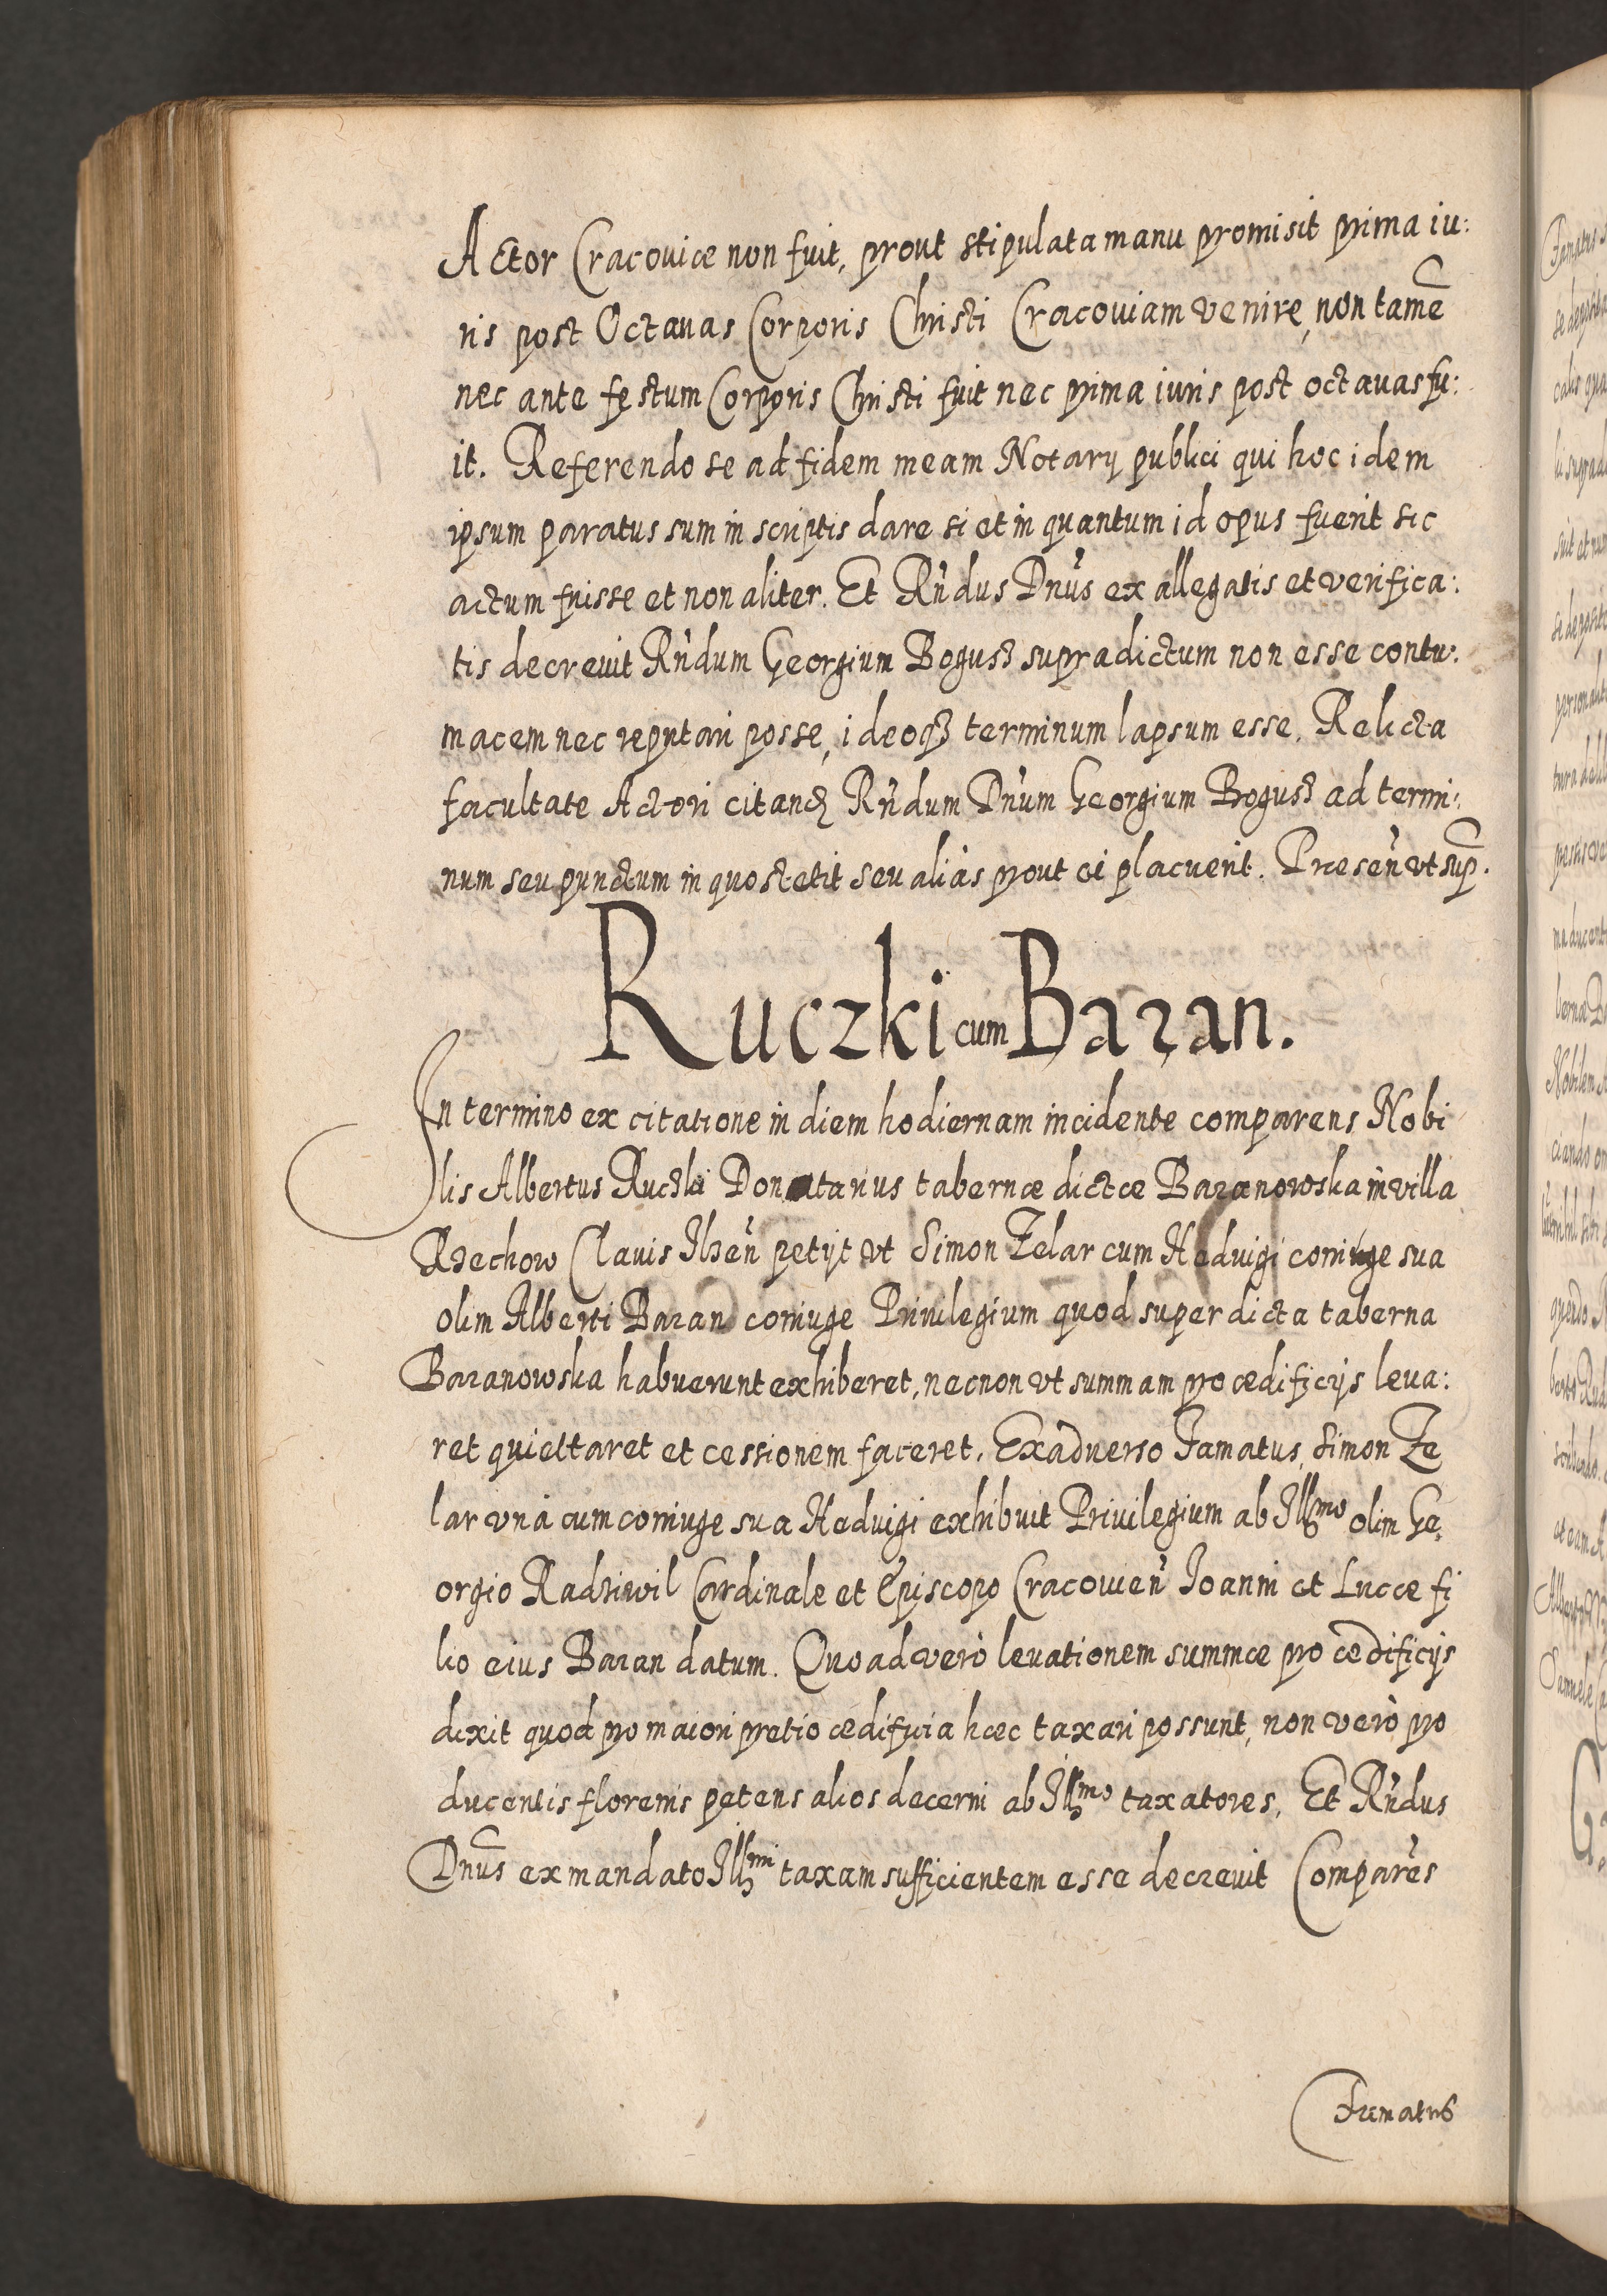 Actor Cracouiæ non fuit, prout stipulata manu promisit prima iu:
ris post Octauas Corporis Christi Cracouiam venire, non tamē
nec ante festum Corporis Christi fuit nec prima iuris post octauas fu:
it. Referendo se ad fidem meam Notarij publici qui hoc idem
ipsum paratus sum in scriptis dare si et in quantum id opus fuerit sic
actum fuisse et non aliter. Et Rńdus Dnús ex allegatis et verifica:
tis decreuit Rńdum Georgium Bogusz supradictum non esse contu:
macem nec reputari posse, ideoqz terminum lapsum esse. Relicta
facultate Actori citandi Rńdum Dńum Georgium Bogusz ad termi:
num seu punctum in quo stetit seu aliàs prout ei placuerit. Præseń vt sup.
Ruczki cum Baran.
In termino ex citatione in diem hodiernam incidente comparens Nobi
lis Albertus Ruczki Donatarius tabernæ dictæ Baranowska in villa
Rzechow Clauis Ilzeń petijt vt Simon Zelar cum Heduigi coniuge sua
olim Alberti Baran coniuge Priuilegium quod super dicta taberna
Baranowska habuerunt exhiberet, necnon vt summam pro ædificijs leua:
ret quiettaret et cessionem faceret. Exaduerso Famatus Simon Ze
lar vnà cum coniuge sua Heduigi exhibuit Priuilegium ab Illmo olim Ge
orgio Radziwil Cardinale et Episcopo Cracouień Joanni et Lucæ fi
lio eius Baran datum. Quoad verò leuationem summæ pro ædificijs
dixit quod pro maiori pretio ædificia hæc taxari possunt, non verò pro
ducentis florenis petens alios decerni ab Illmo taxatores. Et Rńdus
Dnus ex mandato Illmi taxam sufficientem esse decreuit Comparēs